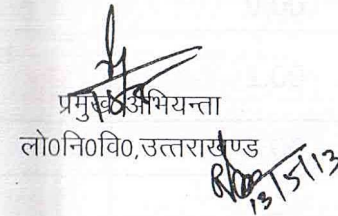 प्रमुख अभियन्ता
लो०नि०वि०,उत्तराखण्ड
13/5/13